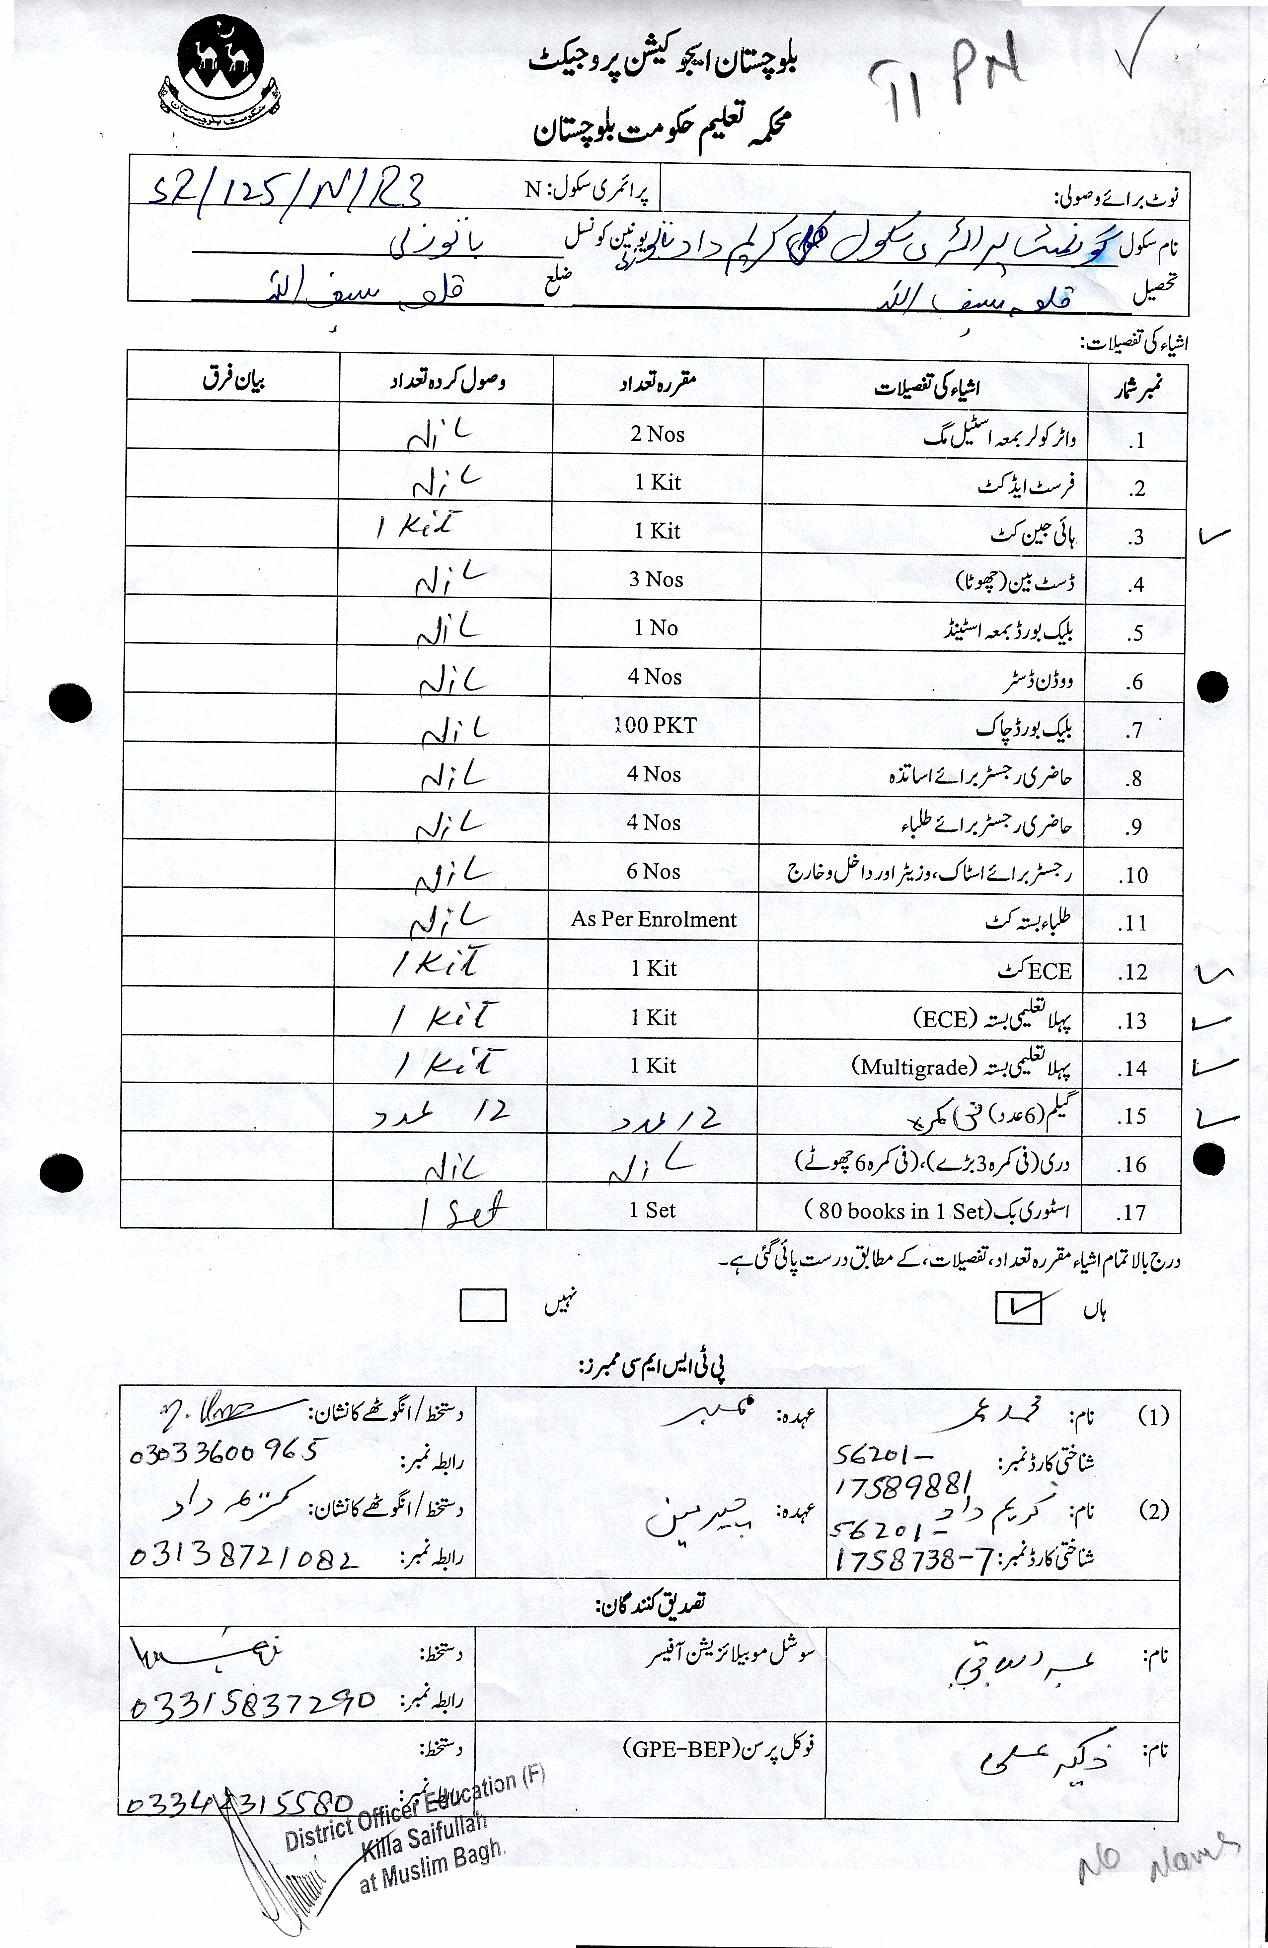 بلوچستان ایجوکیشن پروجیکٹ
TI PN
محکمہ تعلیم حکومت بلوچستان
حکومت بلوچستان
نوٹ برائے وصولی: پرائمری سکول: N S2/125/N/R3
نام سکول گورنمنٹ پرائمری سکول کلی کریم داد یونین کونسل باتوزئی
تحصیل قلعہ سیف اللہ ضلع قلعہ سیف اللہ
اشیاء کی تفصیلات:
نمبر شمار اشیاء کی تفصیلات مقررہ تعداد وصول کردہ تعداد بیان فرق
1. واٹر کولر بمعہ اسٹیل مگ 2 Nos Nil
2. فرسٹ ایڈ کٹ 1 Kit Nil
3. ہائی جین کٹ 1 Kit 1 Kit
4. ڈسٹ بین (چھوٹا) 3 Nos Nil
5. بلیک بورڈ بمعہ اسٹینڈ 1 No Nil
6. ووڈن ڈسٹر 4 Nos Nil
7. بلیک بورڈ چاک 100 PKT Nil
8. حاضری رجسٹر برائے اساتذہ 4 Nos Nil
9. حاضری رجسٹر برائے طلباء 4 Nos Nil
10. رجسٹر برائے اسٹاک، وزیٹر اور داخل و خارج 6 Nos Nil
11. طلباء بستہ کٹ As Per Enrolment Nil
12. ECE کٹ 1 Kit 1 Kit
13. پہلا تعلیمی بستہ (ECE) 1 Kit 1 Kit
14. پہلا تعلیمی بستہ (Multigrade) 1 Kit 1 Kit
15. گیلم (6 عدد) فی کمرہ 12 عدد 12 عدد
16. دری (فی کمرہ 3 بڑے)، (فی کمرہ 6 چھوٹے) Nil Nil
17. اسٹوری بک (80 books in 1 Set) 1 Set 1 Set
درج بالا تمام اشیاء مقررہ تعداد، تفصیلات، کے مطابق درست پائی گئی ہے۔
ہاں نہیں
پی ٹی ایس ایم سی ممبرز:
(1) نام: محمد عمر عہدہ: ممبر دستخط/انگوٹھے کا نشان:
شناختی کارڈ نمبر: 56201-17589881 رابطہ نمبر: 03033600965
(2) نام: کریم داد عہدہ: چیرمین دستخط/انگوٹھے کا نشان: کریم داد
شناختی کارڈ نمبر: 56201-1758738-7 رابطہ نمبر: 03138721082
تصدیق کنندگان:
نام: عبدالباقی سوشل موبیلائزیشن آفیسر دستخط:
رابطہ نمبر: 03315837290
نام: ذکیہ علی فوکل پرسن (GPE-BEP) دستخط:
رابطہ نمبر: 03342315580
District Officer Education (F)
Killa Saifullah
at Muslim Bagh.
No Names